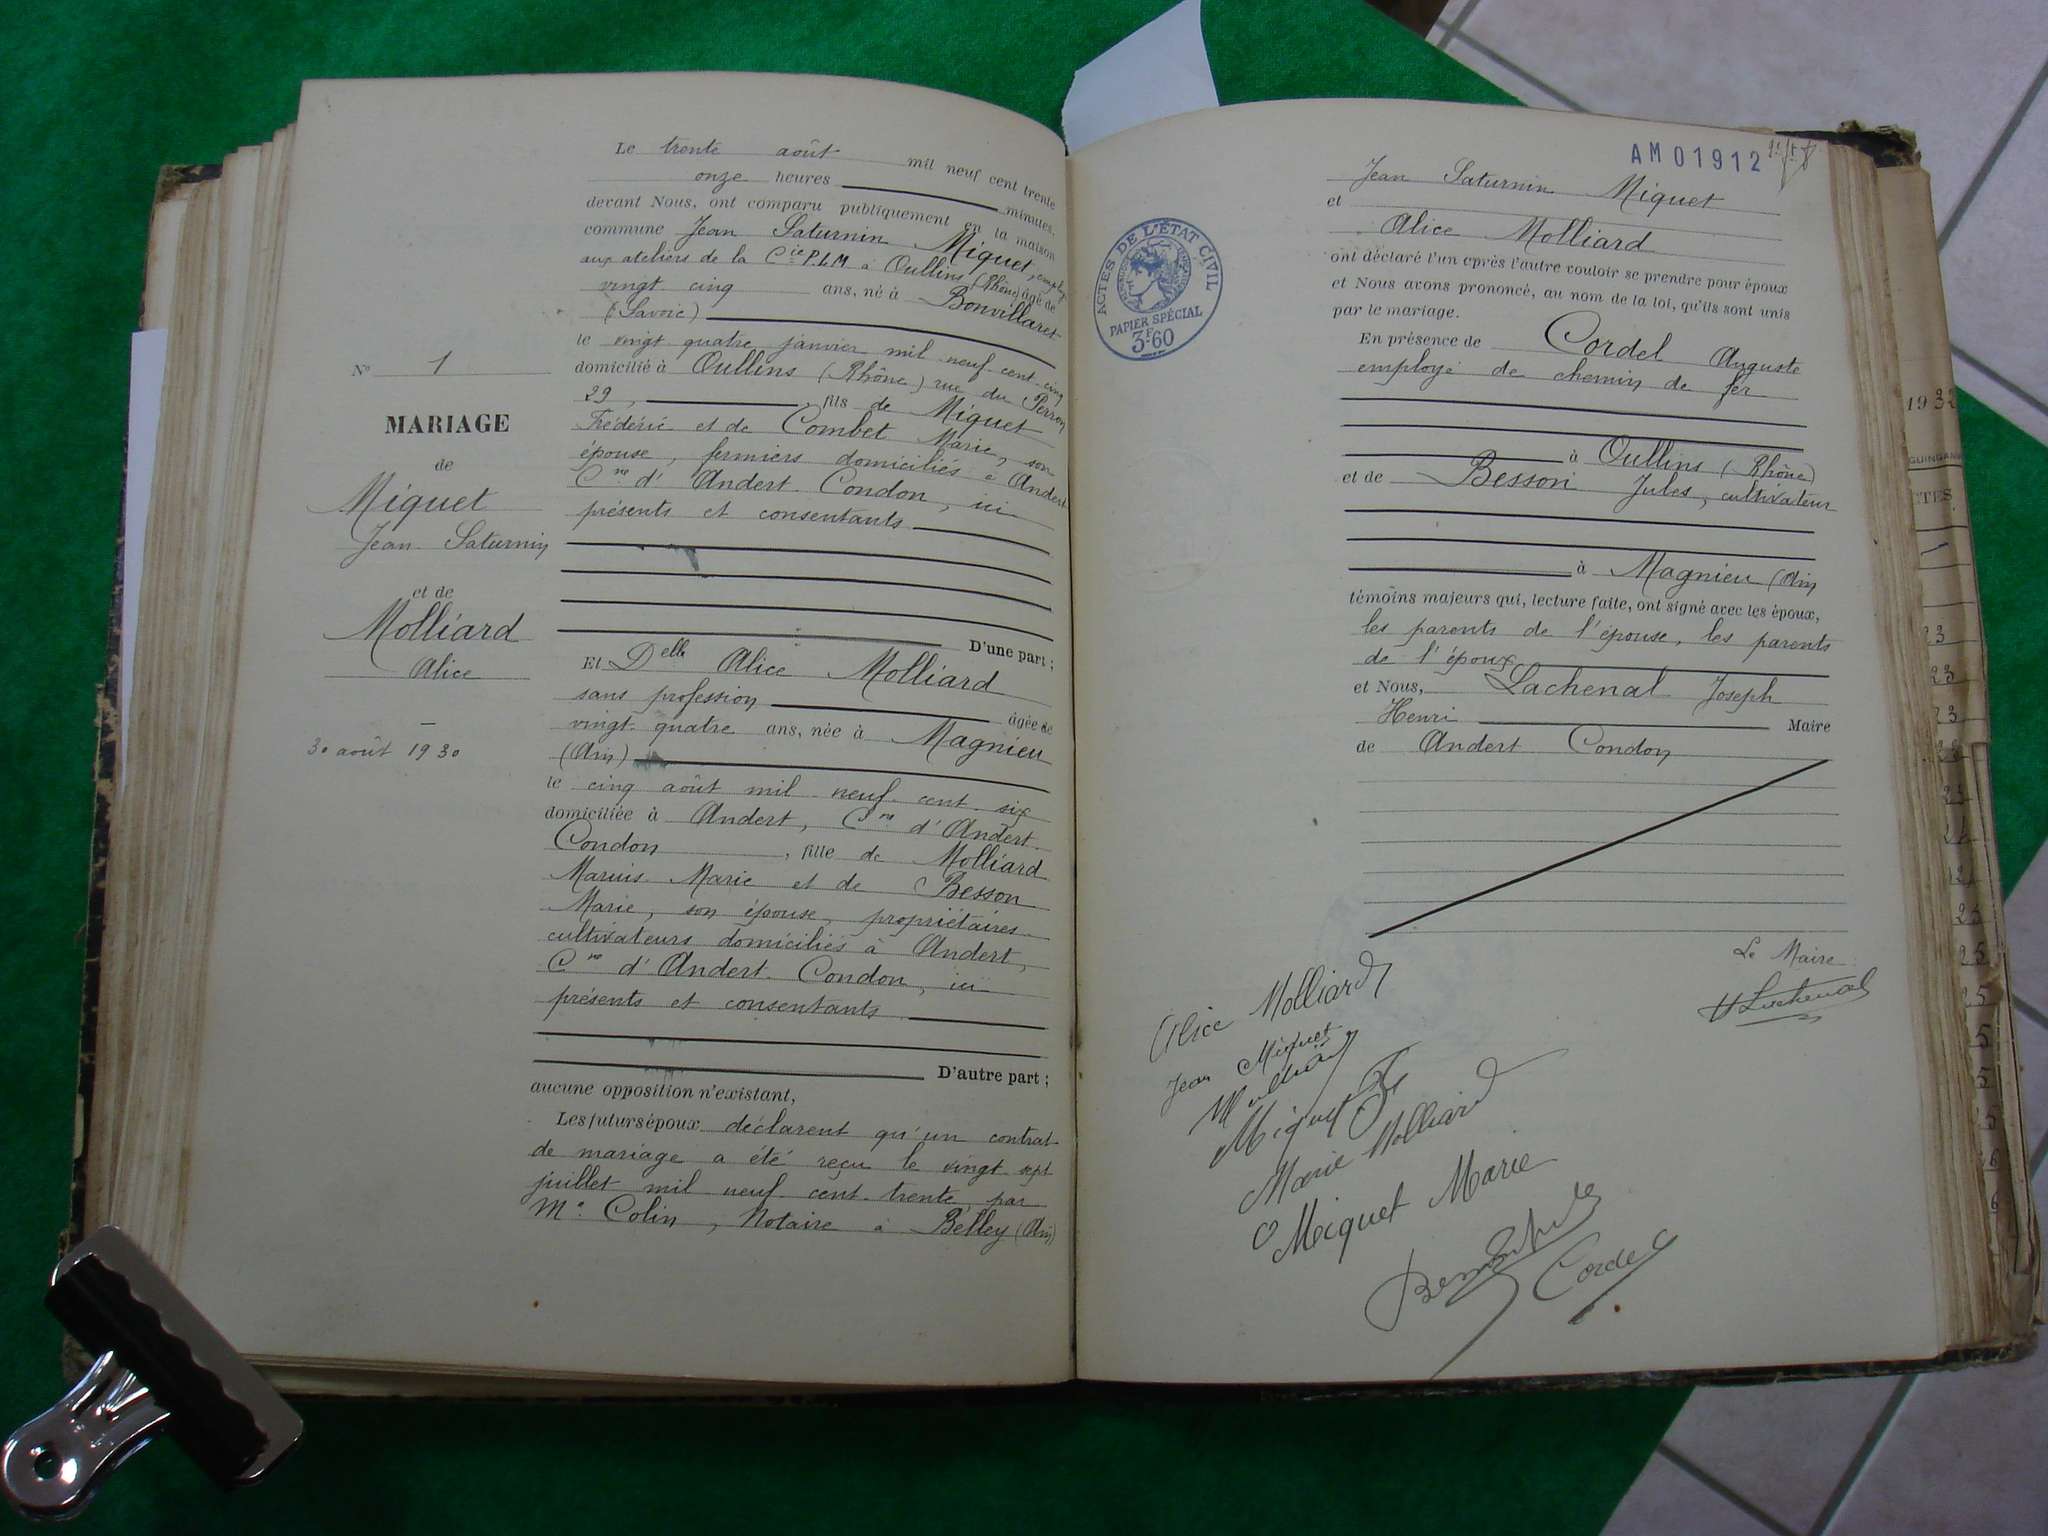 N° 1
MARIAGE
de
Miquet
Jean Saturnin
et de
Molliard
Alice
30 août 1930
Le trente août mil neuf cent trente
onze heures minutes,
devant Nous, ont comparu publiquement en la maison
commune Jean Saturnin Miquet, employé
aux ateliers de la Cie P.L.M. à Oullins (Rhône) âgé de
vingt cinq ans, né à Bonvillaret
(Savoie)
le vingt quatre janvier mil neuf cent cinq
domicilié à Oullins (Rhône) rue du Perron
29, fils de Miquet
Frédéric et de Combet Marie, son
épouse, fermiers domiciliés à Andert
Cne d'Andert-Condon, ici
présents et consentants
D'une part ;
Et Delle Alice Molliard
sans profession âgée de
vingt quatre ans, née à Magnieu
(Ain)
le cinq août mil neuf cent six
domiciliée à Andert, Cne d'Andert-
Condon, fille de Molliard
Marius Marie et de Besson
Marie, son épouse, propriétaires
cultivateurs domiciliés à Andert,
Cne d'Andert-Condon, ici
présents et consentants
D'autre part ;
aucune opposition n'existant,
Les futurs époux déclarent qu'un contrat
de mariage a été reçu le vingt sept
juillet mil neuf cent trente par
Me Colin, Notaire à Belley (Ain)
AM01912
ACTES DE L'ÉTAT CIVIL
PAPIER SPÉCIAL
3F60
Jean Saturnin Miquet
et
Alice Molliard
ont déclaré l'un après l'autre vouloir se prendre pour époux
et Nous avons prononcé, au nom de la loi, qu'ils sont unis
par le mariage.
En présence de Cordel Auguste
employé de chemin de fer
à Oullins (Rhône)
et de Besson Jules, cultivateur
à Magnieu (Ain)
témoins majeurs qui, lecture faite, ont signé avec les époux,
les parents de l'épouse, les parents
de l'époux
et Nous, Lachenal Joseph
Henri Maire
de Andert Condon
Le Maire
H Lachenal
Alice Molliard
Jean Miquet
Molliard
Miquet F
Marie Molliard
Miquet Marie
Besson Jules
Cordel
1932
GUINGAN
CTES
23
23
23